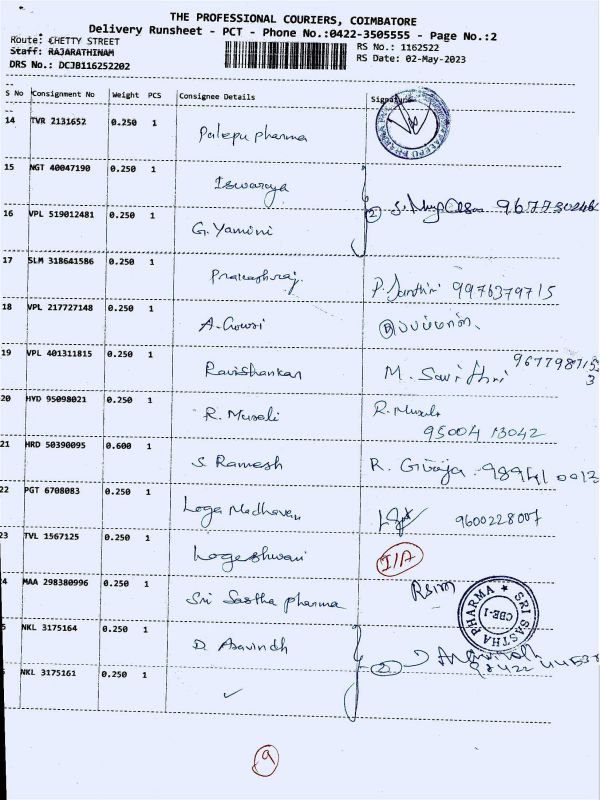 THE PROFESSIONAL COURIERS, COIMBATORE
Delivery Runsheet - PCT - Phone No.:0422-3505555 - Page No.:2
Route: CHETTY STREET
Staff: RAJARATHINAM
DRS No.: DCJB116252202
RS No.: 1162522
RS Date: 02-May-2023
S No Consignment No Weight PCS Consignee Details Signature
14 TVR 2131652 0.250 1 Palepu pharma
15 NGT 40047190 0.250 1 Iswarya
16 VPL 519012481 0.250 1 G. Yamini 2
17 SLM 318641586 0.250 1 Prakashraj P. Santhiri 9976379715
18 VPL 217727148 0.250 1 A. Gowri
19 VPL 401311815 0.250 1 Ravishankar M. Savithri
20 HYD 95098021 0.250 1 R. Musali R. Musali
95004 13042
21 HRD 50390095 0.600 1 S. Ramesh R. Girija
22 PGT 6708083 0.250 1 Loga Madhavan 9600228007
23 TVL 1567125 0.250 1 Logeshwari I/A
4 MAA 298380996 0.250 1 Sri Sastha pharma
SRI SASTHA PHARMA ★ CBE-1
5 NKL 3175164 0.250 1 D. Aravindh 2
NKL 3175161 0.250 1 ✓
9